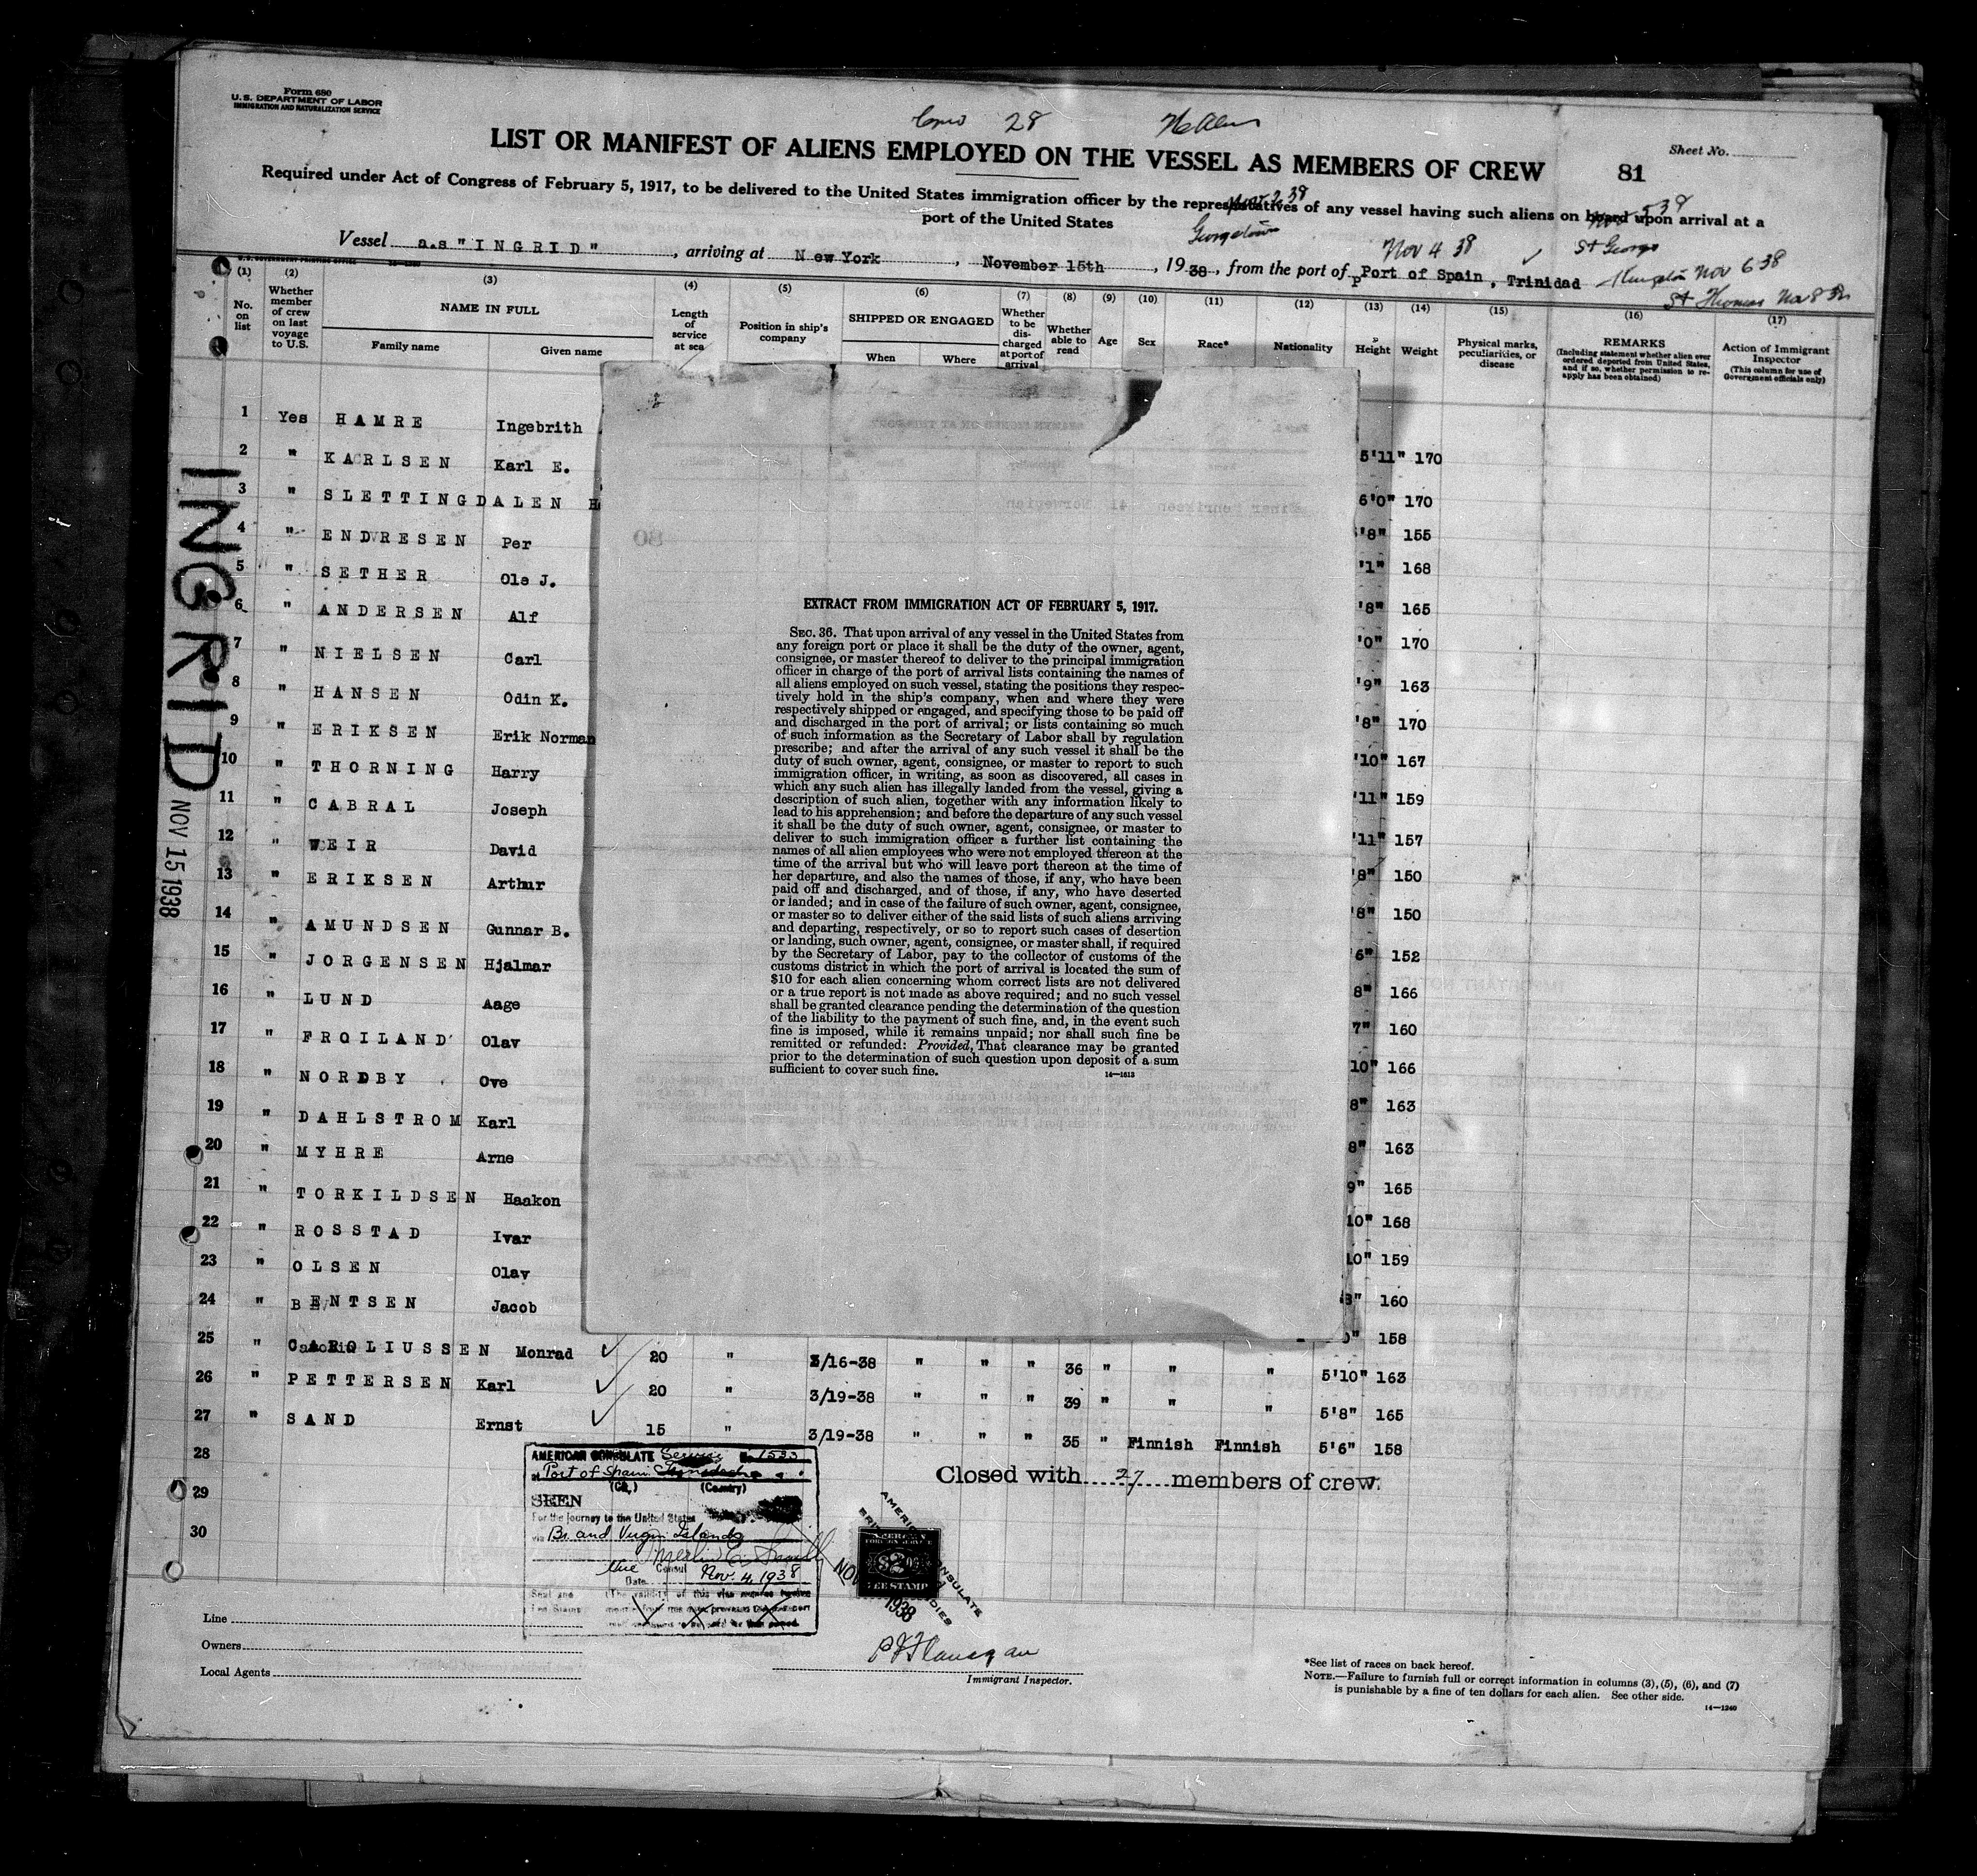 Form 680
U.S. DEPARTMENT OF LABOR
IMMIGRATION AND NATURALIZATION SERVICE
28
LIST OR MANIFEST OF ALIENS EMPLOYED ON THE VESSEL AS MEMBERS OF CREW
81
Sheet No.
Required under Act of Congress of February 5, 1917, to be delivered to the United States immigration officer by the representatives of any vessel having such aliens on board upon arrival at a
port of the United States
Georgetown
Nov 4 38
St George
Vessel s.s "INGRID", arriving at New York, November 15th, 1938, from the port of Port of Spain, Trinidad
Kingston Nov 6 38
St Thomas Nov 8 38
(1) (2) (3) (4) (5) (6) (7) (8) (9) (10) (11) (12) (13) (14) (15) (16) (17)
No. on list
Whether member of crew on last voyage to U.S.
NAME IN FULL
Family name
Given name
Length of service at sea
Position in ship's company
SHIPPED OR ENGAGED
When
Where
Whether to be discharged at port of arrival
Whether able to read
Age
Sex
Race*
Nationality
Height
Weight
Physical marks, peculiarities, or disease
REMARKS
(Including statement whether alien ever ordered deported from United States, and if so, whether permission to reapply has been obtained)
Action of Immigrant Inspector
(This column for use of Government officials only)
1 Yes HAMRE Ingebrith
2 " KARLSEN Karl E. 5'11" 170
3 " SLETTINGDALEN H 6'0" 170
4 " ENDRESEN Per '8" 155
5 " SETHER Ole J. '1" 168
6 " ANDERSEN Alf '8" 165
7 " NIELSEN Carl '0" 170
8 " HANSEN Odin K. '9" 163
9 " ERIKSEN Erik Norman '8" 170
10 " THORNING Harry '10" 167
11 " CABRAL Joseph '11" 159
12 " WEIR David '11" 157
13 " ERIKSEN Arthur '8" 150
14 " AMUNDSEN Gunnar B. '8" 150
15 " JORGENSEN Hjalmar '6" 152
16 " LUND Aage 8" 166
17 " FROILAND Olav 7" 160
18 " NORDBY Ove 10" 166
19 " DAHLSTROM Karl 8" 163
20 " MYHRE Arne 8" 163
21 " TORKILDSEN Haakon 9" 165
22 " ROSSTAD Ivar 10" 168
23 " OLSEN Olav 10" 159
24 " BENTSEN Jacob 8" 160
0" 158
25 " CAROLIUSSEN Monrad 20 " 3/16-38 " " " 36 " " " 5'10" 163
26 " PETTERSEN Karl 20 " 3/19-38 " " " 39 " " " 5'8" 165
27 " SAND Ernst 15 " 3/19-38 " " " 35 " Finnish Finnish 5'6" 158
28
29
30
INGRID
NOV 15 1938
EXTRACT FROM IMMIGRATION ACT OF FEBRUARY 5, 1917.
SEC. 36. That upon arrival of any vessel in the United States from
any foreign port or place it shall be the duty of the owner, agent,
consignee, or master thereof to deliver to the principal immigration
officer in charge of the port of arrival lists containing the names of
all aliens employed on such vessel, stating the positions they respec-
tively hold in the ship's company, when and where they were
respectively shipped or engaged, and specifying those to be paid off
and discharged in the port of arrival; or lists containing so much
of such information as the Secretary of Labor shall by regulation
prescribe; and after the arrival of any such vessel it shall be the
duty of such owner, agent, consignee, or master to report to such
immigration officer, in writing, as soon as discovered, all cases in
which any such alien has illegally landed from the vessel, giving a
description of such alien, together with any information likely to
lead to his apprehension; and before the departure of any such vessel
it shall be the duty of such owner, agent, consignee, or master to
deliver to such immigration officer a further list containing the
names of all alien employees who were not employed thereon at the
time of the arrival but who will leave port thereon at the time of
her departure, and also the names of those, if any, who have been
paid off and discharged, and of those, if any, who have deserted
or landed; and in case of the failure of such owner, agent, consignee,
or master so to deliver either of the said lists of such aliens arriving
and departing, respectively, or so to report such cases of desertion
or landing, such owner, agent, consignee, or master shall, if required
by the Secretary of Labor, pay to the collector of customs of the
customs district in which the port of arrival is located the sum of
$10 for each alien concerning whom correct lists are not delivered
or a true report is not made as above required; and no such vessel
shall be granted clearance pending the determination of the question
of the liability to the payment of such fine, and, in the event such
fine is imposed, while it remains unpaid; nor shall such fine be
remitted or refunded: Provided, That clearance may be granted
prior to the determination of such question upon deposit of a sum
sufficient to cover such fine.
14—1613
Closed with 27 members of crew.
AMERICAN CONSULATE Service No. 1533
at Port of Spain Trinidad
(City) (Country)
SEEN
For the journey to the United States
via Br. and Virgin Islands
Vice Consul
Date Nov. 4, 1938
FEE STAMP
1938
P J Flanagan
Immigrant Inspector.
Line
Owners
Local Agents
*See list of races on back hereof.
NOTE.—Failure to furnish full or correct information in columns (3), (5), (6), and (7)
is punishable by a fine of ten dollars for each alien. See other side.
14—1240